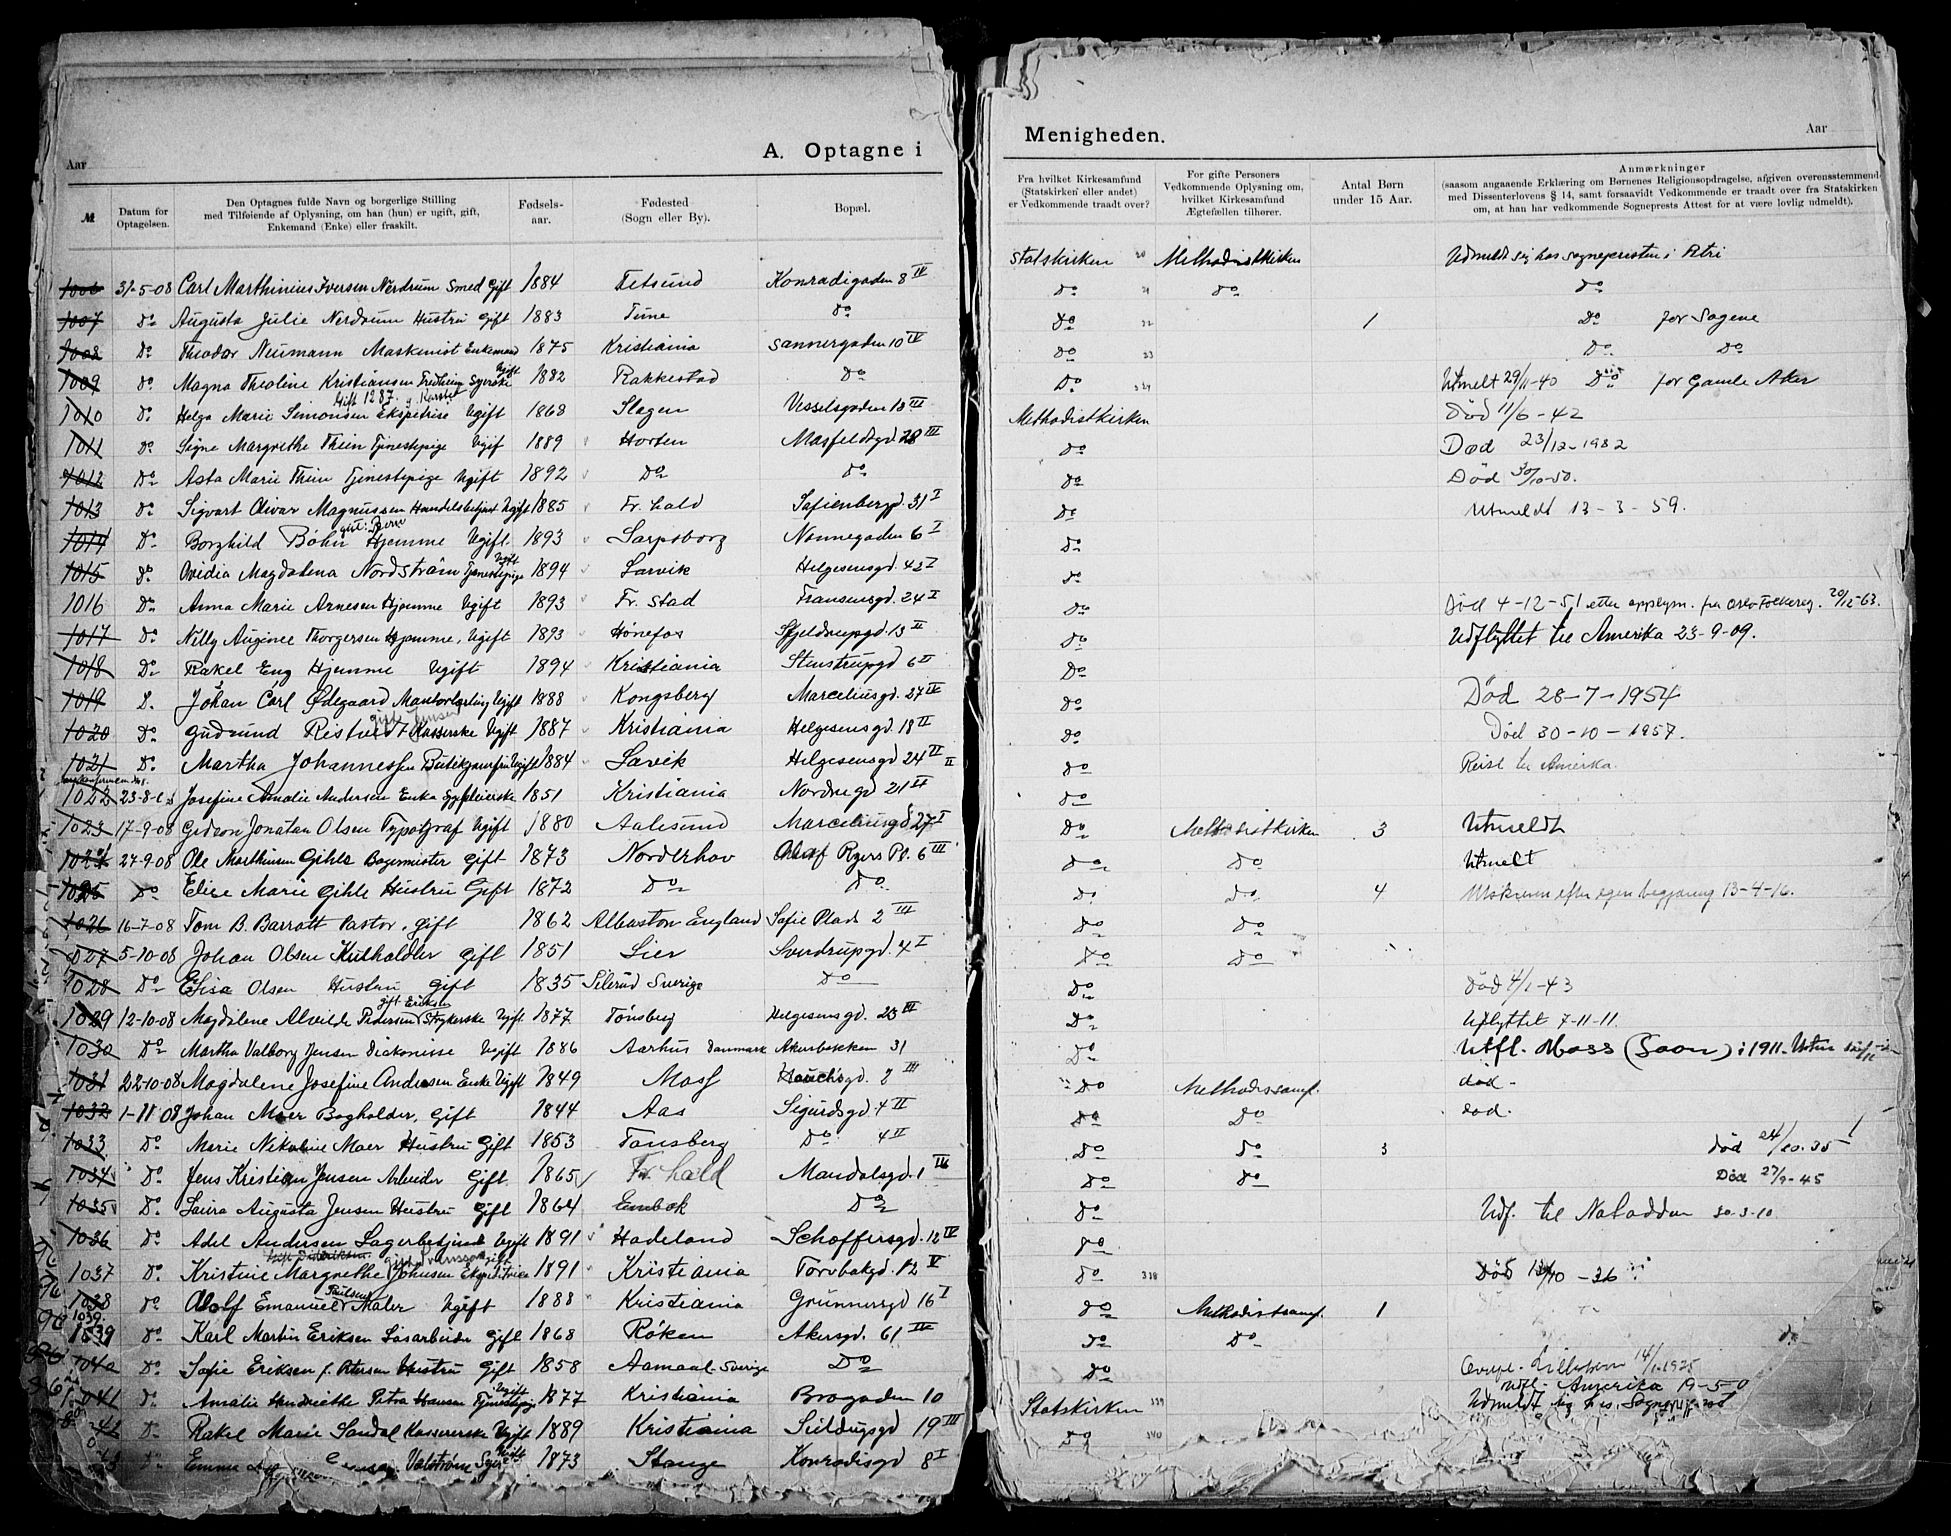 A. Optagne i
Menigheden.
Aar
Aar
№
Datum for Optagelsen.
Den Optagnes fulde Navn og borgerlige Stilling
med Tilføiende af Oplysning, om han (hun) er ugift, gift,
Enkemand (Enke) eller fraskilt.
Fødsels-
aar.
Fødested
(Sogn eller By).
Bopæl.
Fra hvilket Kirkesamfund
(Statskirken eller andet)
er Vedkommende traadt over?
For gifte Personers
Vedkommende Oplysning om,
hvilket Kirkesamfund
Ægtefællen tilhører.
Antal Børn
under 15 Aar.
Anmærkninger
(saasom angaaende Erklæring om Børnenes Religionsopdragelse, afgiven overensstemmende
med Dissenterlovens § 14, samt forsaavidt Vedkommende er traadt over fra Statskirken
om, at han har vedkommende Sogneprests Attest for at være lovlig udmeldt).
1006 31-5-08 Carl Marthinius Iversen Nerdrum Smed Gift 1884 Fetsund Konradigaden 8 IV
1007 Do Augusta Julie Nerdrum Hustru Gift 1883 Tune Do
1008 Do Theodor Neumann Maskinist Enkemand 1875 Kristiania Sannergaden 10 IV
1009 Do Magna Theoline Kristiansen Fredheim Syerske Ugift 1882 Rakkestad Do
Gift 1287
1010 Do Helga Marie Simonsen Ekspetrise Ugift 1868 Slagen Vesselsgaden 13 III
1011 Do Signe Margrethe Thein Tjenestepige Ugif 1889 Horten Masfeldtsgd 28 III
1012 Do Asta Marie Thein Tjenestepige Ugift 1892 Do Do
1013 Do Sigvart Olivar Magnussen Handelsbetjent Ugift 1885 Fr. hald Sofienbergd. 31 I
1014 Do Borghild Bøhn Hjemme Ugift. 1893 Sarpsborg Nonnegaden 6 I
1015 Do Ovidia Magdalena Nordstrøm Tjenestepige Ugift 1894 Larvik Helgesensgd. 42 I
1016 Do Anna Marie Arnesen Hjemme Ugift 1893 Fr. stad Fransensgd. 24 I
1017 Do Nelly Auginee Thorgersen Hjemme, Ugift 1893 Hønefos 13 II
1018 Do Rakel Eng Hjemme Ugift 1894 Kristiania Stenstrupgd 6 II
1019 D. Johan Carl Ødegaard Ugift 1888 Kongsberg Marceliusgd. 27 IV
1020 Do Gudrund Ristvedt Kasserske Ugift 1887 Kristiania Helgesensgd. 18 II
gift Jensen
1021 Do Martha Johannessen Ugift 1884 Larvik Helgesensgd 24 II
1022 23-8- Josefine Amalie Andersen Enke Sygepleierske 1851 Kristiania Nordregd 21 II
1023 17-9-08 Gideon Jonatan Olsen Typograf Ugift 1880 Aalesund Marceliusgd 27 I
1024 27-9-08 Ole Marthinsen Gihle Bagemester Gift 1873 Norderhov Olaf Ryes Pl. 6 III
1025 Do Elise Marie Gihle Hustru Gift 1872 Do Do
1026 16-7-08 Tom B. Barratt Pastor. Gift 1862 Albaston England Sofie Plads 2 III
1027 5-10-08 Johan Olsen Kulhandler Gift 1851 Lier Sverdrupgd. 4 I
1028 Do Elisa Olsen Hustru Gift 1835 Silerud Sverige Do
gift Eriksen
1029 12-10-08 Magdalene Alvilde Pedersen Strykerske Ugift 1877 Tønsberg Helgesensgd. 23 III
1030 Do Martha Valborg Jensen Diakonisse Ugift 1886 Aarhus Danmark Akersbakken 31
1031 22-10-08 Magdalene Josefine Andresen Enke Ugift 1849 Moss Hauchsgd. 3 III
1032 1-11 08 Johan Moer Bogholder, Gift 1844 Aas Sigurdsgd 4 II
1033 Do Merie Nikoline Moer Hustru Gift 1853 Tønsberg Do 4 II
1034 Do Jens Kristian Jensen Arbeider Gift 1865 Fr. hald Mandalsgd. 1
1035 Do Laura Augusta Jensen Hustru Gift 1864 Do
1036 Do Adel Andersen Lagerbetjent Ugift 1891 Hadeland Schøffersgd. 12 IV
1037 Do Kristine Margrethe Johnsen Ekspeditrice 1891 Kristiania Torvbakgd. 12 V
1038 Do Adolf Emanuel Maler Ugift 1888 Kristiania Grünnersgd 16 I
1039 Do Karl Martin Eriksen Løsarbeider Gift 1868 Røken Akersgd. 61 IV
1040 Do Sofie Eriksen f. Petersen Hustru Gift 1858 Aamaal-Sverige Do
1041 Do Amalie Hendriette Petra Hansen Tjenestepig Ugift 1877 Kristiania Brogaden 10
42 Do Rakel Marie Sandal Kassererske Ugift 1889 Kristiania Sildugsgd 19 III
43 Do Emma Valstrøm Ugift 1873 Stange Konradisgd 8 I
Statskirken 20 Methodistkirken Udmeldt sig hos sognepresten i Petri
Do 21 Do Do
Do 22 1 Do for Sagene
Do 23 Do Do
Do 324 Utmelt 29/11-40 Do for Gamle Aker
Methodistkirken Død 11/6-42
Do Død 23/12-1982
Do Død 30/10-50.
Do Utmeldt 13-3-59.
Do
Do
Do Død 4-12-51 etter opplysn. fra Oslo Folkereg. 20/12-63.
Do Udflyttet til Amerika 23-9-09.
Do
Do Død 28-7-1954
Do Død 30-10-1957.
Do Reist til Amerika.
Do
Do Methodistkirken 3 Utmeldt
Do Do Utmelt
Do Do 4 Utskreven efter egen begjæring 13-4-16.
Do Do
Do Do
Do Død 4/1-43
Do Uflyttet 7-11-11.
Do Utfl. Moss (Soon) i 1911.
Do Methodissamf. død-
Do Do død.
Do Do 3 død 24/10.35
Do Do Død 27/9-45
Do Udf. til Notodden 30-3-10
Do
Do 338 Død -36
Do Methodistsamf. 1
Do Do
Do Lillestrøm 14/1-1925
Utfl. Amerika 19-5-0
Statskirken 339 Udmeldt sig hos Sognepresten
Do 340